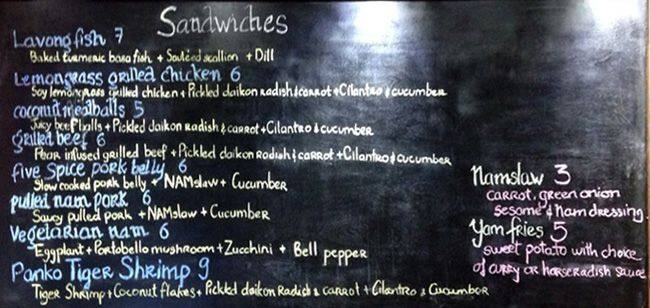 Sandwiches
Lavong fish 7
Baked turmeric basa fish + Sautéed scallion + Dill
Lemongrass grilled chicken 6
Soy lemongrass grilled chicken + Pickled daikon radish & carrot + Cilantro & cucumber
coconut meatballs 5
Juicy beef balls + Pickled daikon Radish & carrot + Cilantro & cucumber
grilled beef 6
Pear infused grilled beef + Pickled daikon Radish & carrot + Cilantro & cucumber
five spice pork belly 6
Slow cooked pork belly + NAMslaw + Cucumber
pulled nam pork 6
Saucy pulled pork + NAMslaw + Cucumber
Vegetarian nam 6
Eggplant + Portobello mushroom + Zucchini + Bell pepper
Panko Tiger Shrimp 9
Tiger Shrimp + Coconut flakes + Pickled daikon Radish & carrot + Cilantro & Cucumbor
Namslaw 3
carrot, green onion
sesome & Nam dressing
Yam fries 5
sweet potato with choice
of curry or horseradish sauce